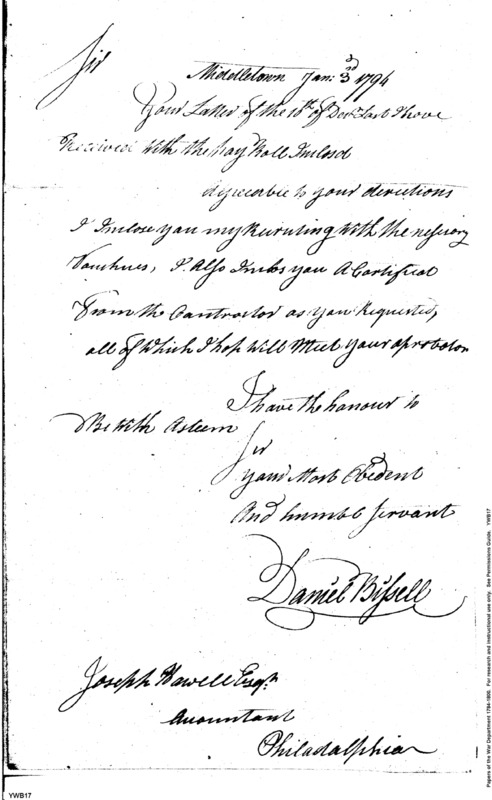 Sir
Middletown Jan: 3d 1794
Your Latter of the 18th of Decr Last I have
Received With the Pay Roll Inclosd
Agreeable to your directions
I Inclose you my Recruting With the nessory
Vouchers, I Also Inclos you A Certificat
From the Contractor as you Requested,
all of Which I hop Will Meet your aprobaton
I have the honour to
Be With Asteem
Sir
your Most Obedent
And humble Servant
Daniel Bissell
Joseph Howell Esqr
Accountant
Philadalphia
YWB17
Papers of the War Department 1784-1800. For research and instructional use only. See Permissions Guide. YWB17